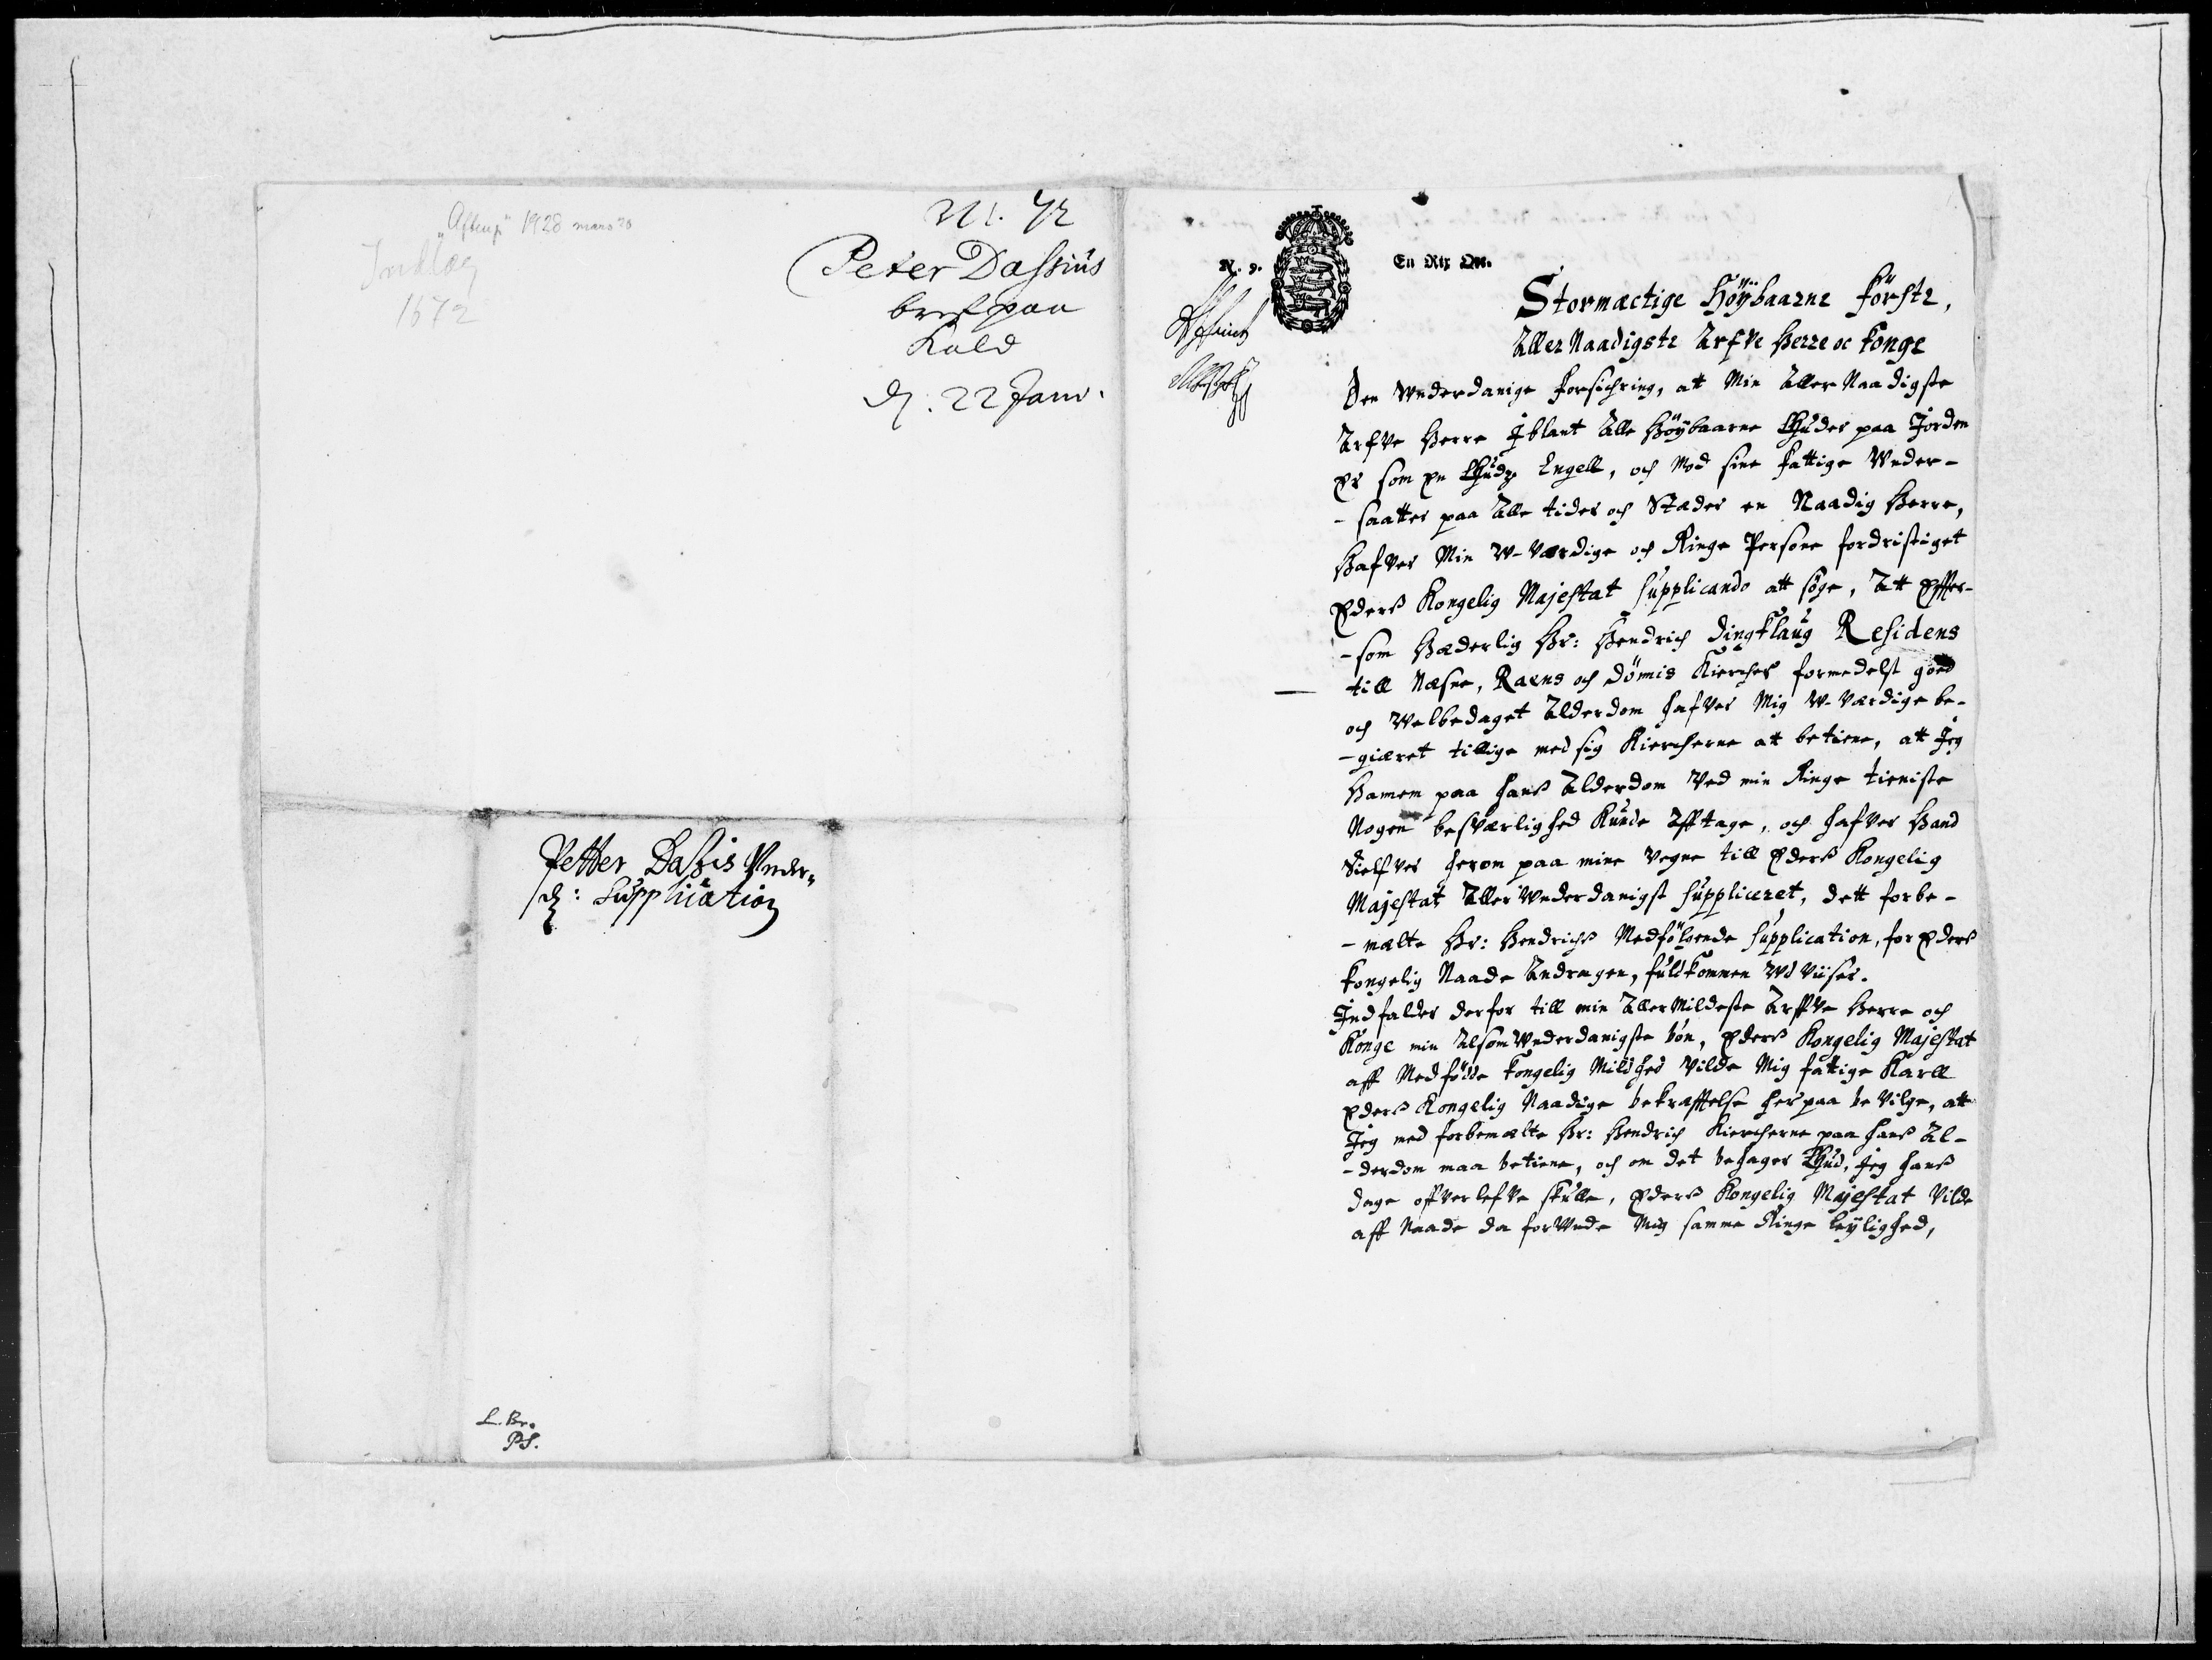 "Aftenp" 1928 mars 20
Indlæg
1672
N. 72
Peter Dassius
bref paa
Kald
d. 22 Janv.
Petter Dassis Under„
d: Supplication
L. Br.
PS.
N. 9.
En Rix Ort.
Stormectige Höÿbaarne Förste,
Aller Naadigste Arfve Herre oc Konge
Den Underdanige forsichring, at Min Aller Naadigste
Arfve Herre Iblant Alle Höÿbaarne Guder paa Jorden
Er som En Gudz Engell, och Mod sine fattige Under-
- saatter paa Alle tider och Stæder en Naadig Herre,
Hafver Min U-Værdige och Ringe Persone fordristiget
Eders Kongelig Majestat supplicando att söge, Att Effter-
- som Hæderlig Hr: Hendrich Dingklaug Residens
till Næsne, Raens och Dömis Kiercher formedelst goed
och Velbedaget Alderdom hafver Mig U-værdige be-
- giæret tillige med sig Kiercherne att betiene, att Jeg
Hannem paa hans Alderdom Ved min Ringe tieniste
Nogen besværlighed Kunde Afftage, och hafver Hand
Sielfver herom paa mine Vegne till Eders Kongelig
Majestat Aller Underdanigst suppliceret, dett forbe-
- mælte Hr: Hendrichs Medfölgende supplication, for Eders
Kongelig Naade Andragen, fuldkommen Udviiser.
Indfalder derfor till min Aller Mildeste Arffve Herre och
Konge min Alsom Underdanigste bön, Eders Kongelig Majestat
aff Medfödde Kongelig Mildhed Vilde Mig fattige Karll
Eders Kongelig Naadige bekræfftelse her paa bevilge, att
Jeg med forbemælte Hr: Hendrich Kiercherne paa hans Al-
- derdom maa betiene, och om det behager Gud, Jeg hans
dage offverlefve skulle, Eders Kongelig Majestat Vilde
aff Naade da forunde Mig samme Ringe leÿlighed,